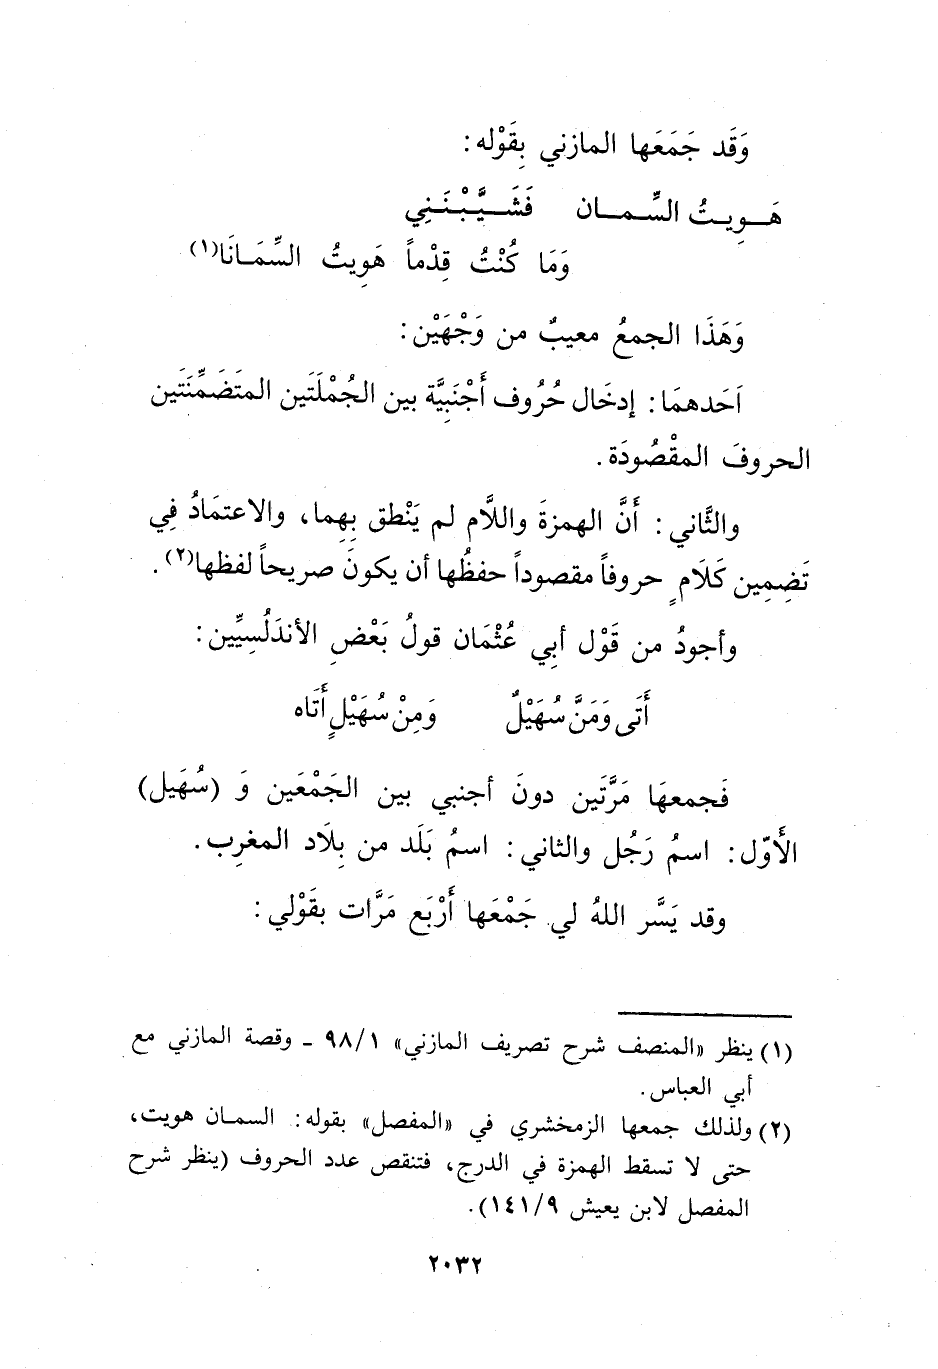 وَقَد جَمَعَها المازني بِقَوْله:
هَـويـتُ السِّـمـان فَشَـيَّـبْـنَـنِي
وَمَا كُنْتُ قِدْماً هَوِيتُ السِّمَـانَا(١)
وَهَذَا الجمعُ معيبٌ من وَجْهَيْن:
اَحَدهمَا: إدخَال حُرُوف أَجْنَبِيَّة بين الجُمْلَتَين المتَضَمِّنَتَين
الحروفَ المقْصُودَة.
والثَّاني: أَنَّ الهمزةَ واللَّام لم يَنْطق بِهِما، والاعتمَادُ فِي
تَضِمِين كَلَامٍ حروفاً مقصوداً حفظُها أن يكونَ صريحاً لفظها(٢).
وأجودُ من قَوْل أبِي عُثْمَان قولُ بَعْضِ الأندَلُسِيِّين:
أَتَى وَمَنَّ سُهَيْلٌ وَمِنْ سُهَيْلٍ أَتَاه
فَجمعهَا مَرَّتَين دونَ أجنبي بين الجَمْعَين وَ (سُهَيل)
الأَوّل: اسمُ رَجُل والثاني: اسمُ بَلَد من بِلَاد المغرِب.
وقد يَسَّر اللهُ لي جَمْعَها أَرْبَع مَرَّات بقَوْلي:
(١) ينظر «المنصف شرح تصريف المازني» ٩٨/١ ـ وقصة المازني مع
أبي العباس.
(٢) ولذلك جمعها الزمخشري في «المفصل» بقوله: السمان هويت،
حتى لا تسقط الهمزة في الدرج، فتنقص عدد الحروف (ينظر شرح
المفصل لابن يعيش ١٤١/٩).
٢٠٣٢